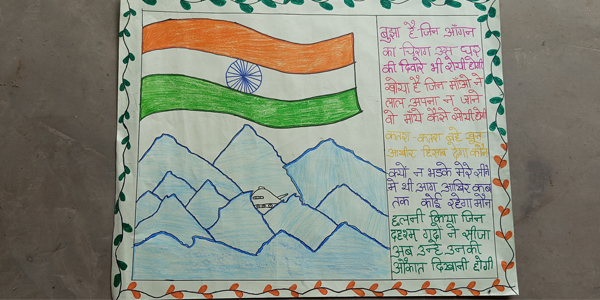 बुझा है जिन आँगन
का चिराग उस घर
की दिवारे भी रोयी होगी
खोया है जिन माँओ ने
लाल अपना न जाने
वो माँये कैसे सोयी होगी
कतरा-कतरा बूहे खून
आखीर हिसाब देगा कौन
क्यों न भडके मेरे सीने
मे भी आग आखिर कब
तक कोई रहेगा मौन
छलनी किया जिन
दहशत गर्दो ने सीना
अब उन्हे उनकी
औकात दिखानी होगी